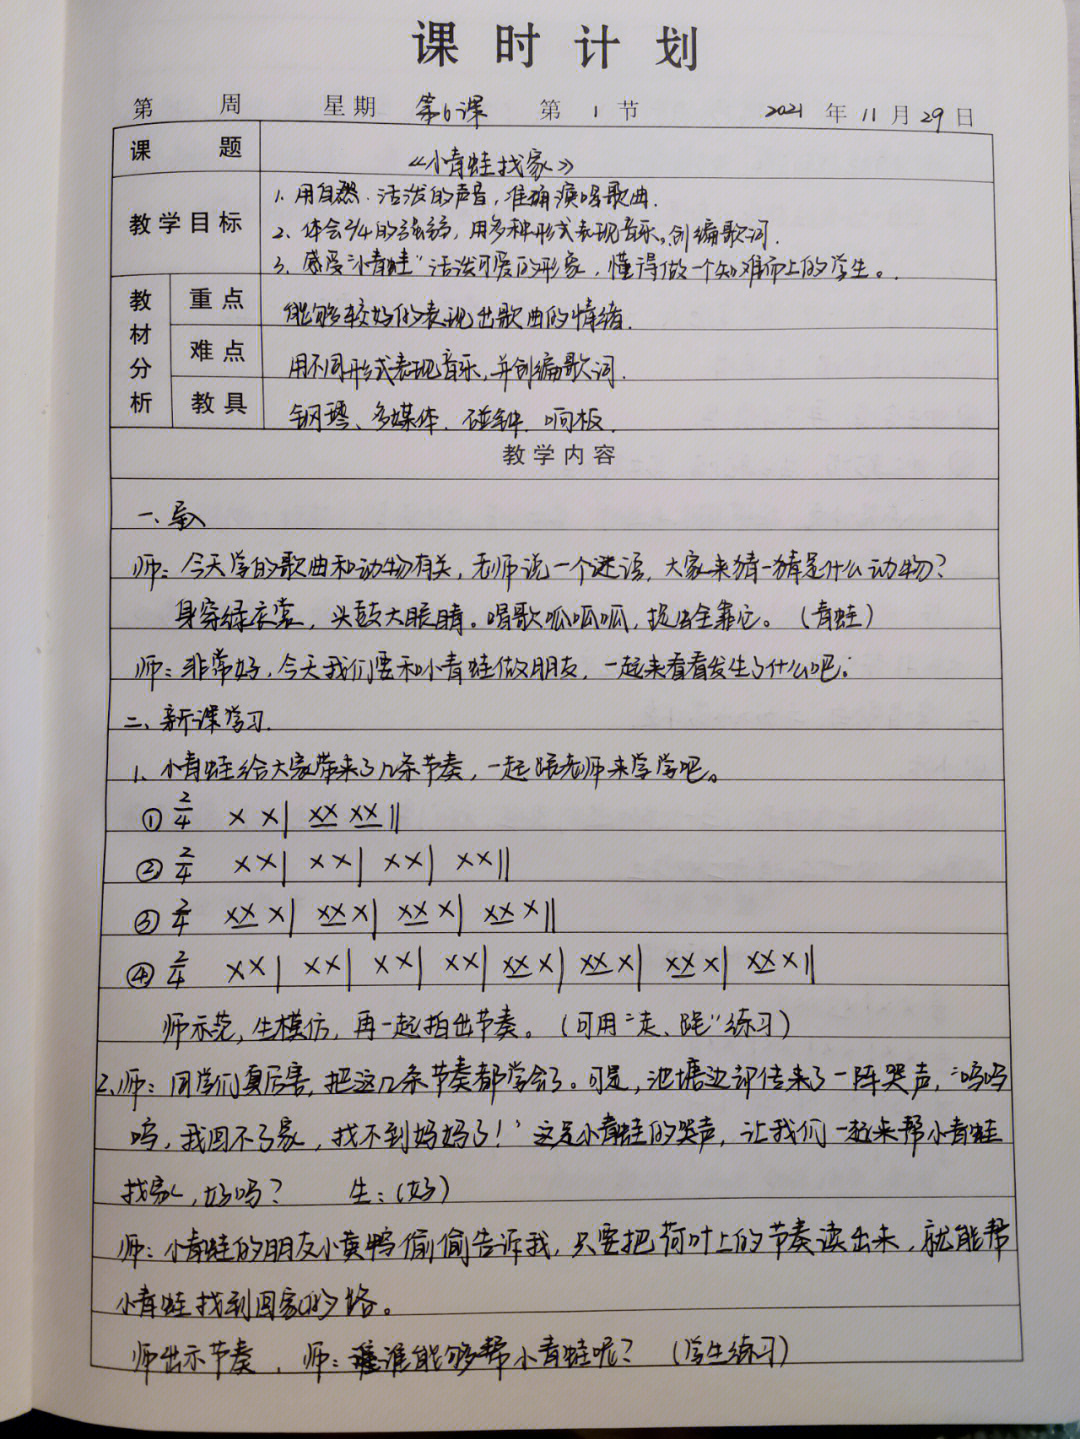 课时计划
第 周 星期 第6课 第 1 节 2021 年 11 月 29 日
课题 《小青蛙找家》
教学目标
1. 用自然、活泼的声音，准确演唱歌曲.
2、体会2/4的强弱，用多种形式表现音乐。创编歌词.
3、感受"小青蛙"活泼可爱的形象，懂得做一个知难而上的学生。
教材分析
重点 能够较好的表现出歌曲的情绪.
难点 用不同形式表现音乐,并创编歌词.
教具 钢琴、多媒体、碰钟、响板.
教学内容
一、导入
师：今天学的歌曲和动物有关，老师说一个谜语，大家来猜一猜是什么动物？
身穿绿衣裳，头鼓大眼睛。唱歌呱呱呱，捉害全靠它。（青蛙）
师：非常好，今天我们要和小青蛙做朋友，一起来看看发生了什么吧.
二、新课学习.
1、小青蛙给大家带来了几条节奏，一起跟老师来学学吧。
① 2/4 X X| XX XX‖
② 2/4 XX| XX| XX| XX‖
③ 2/4 XX X| XX X| XX X| XX X‖
④ 2/4 XX| XX| XX| XX| XX X| XX X| XX X| XX X‖
师示范，生模仿，再一起拍出节奏。（可用"走、跑"练习）
2.师：同学们真厉害，把这几条节奏都学会了。可是，池塘边却传来了一阵哭声，"呜呜
呜，我回不了家，找不到妈妈了！"这是小青蛙的哭声，让我们一起来帮小青蛙
找家，好吗？ 生：（好）
师：小青蛙的朋友小黄鸭偷偷告诉我，只要把荷叶上的节奏读出来，就能帮
小青蛙找到回家的路。
师出示节奏，师：谁能够帮小青蛙呢？（学生练习）